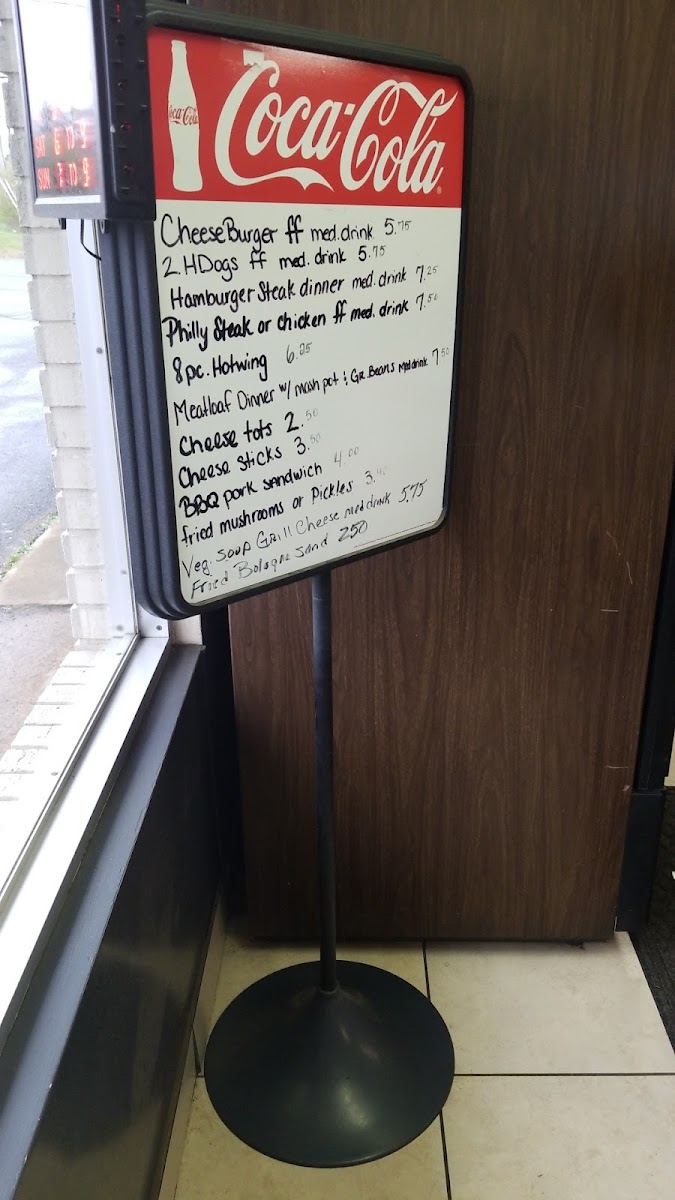 Coca-Cola
Coca-Cola
CheeseBurger ff med. drink 5.75
2. HDogs ff med. drink 5.75
Hamburger Steak dinner med. drink 7.25
Philly Steak or chicken ff med. drink 7.50
8pc. Hotwing 6.25
Meatloaf Dinner w/ mash pot & Gr. Beans Med drink 7.50
Cheese tots 2.50
Cheese Sticks 3.50
BBQ pork sandwich 4.00
fried mushrooms or Pickles 3.40
Veg. Soup Grill Cheese med drink 5.75
Fried Bologna Sand 250
SUN 7 TO 9